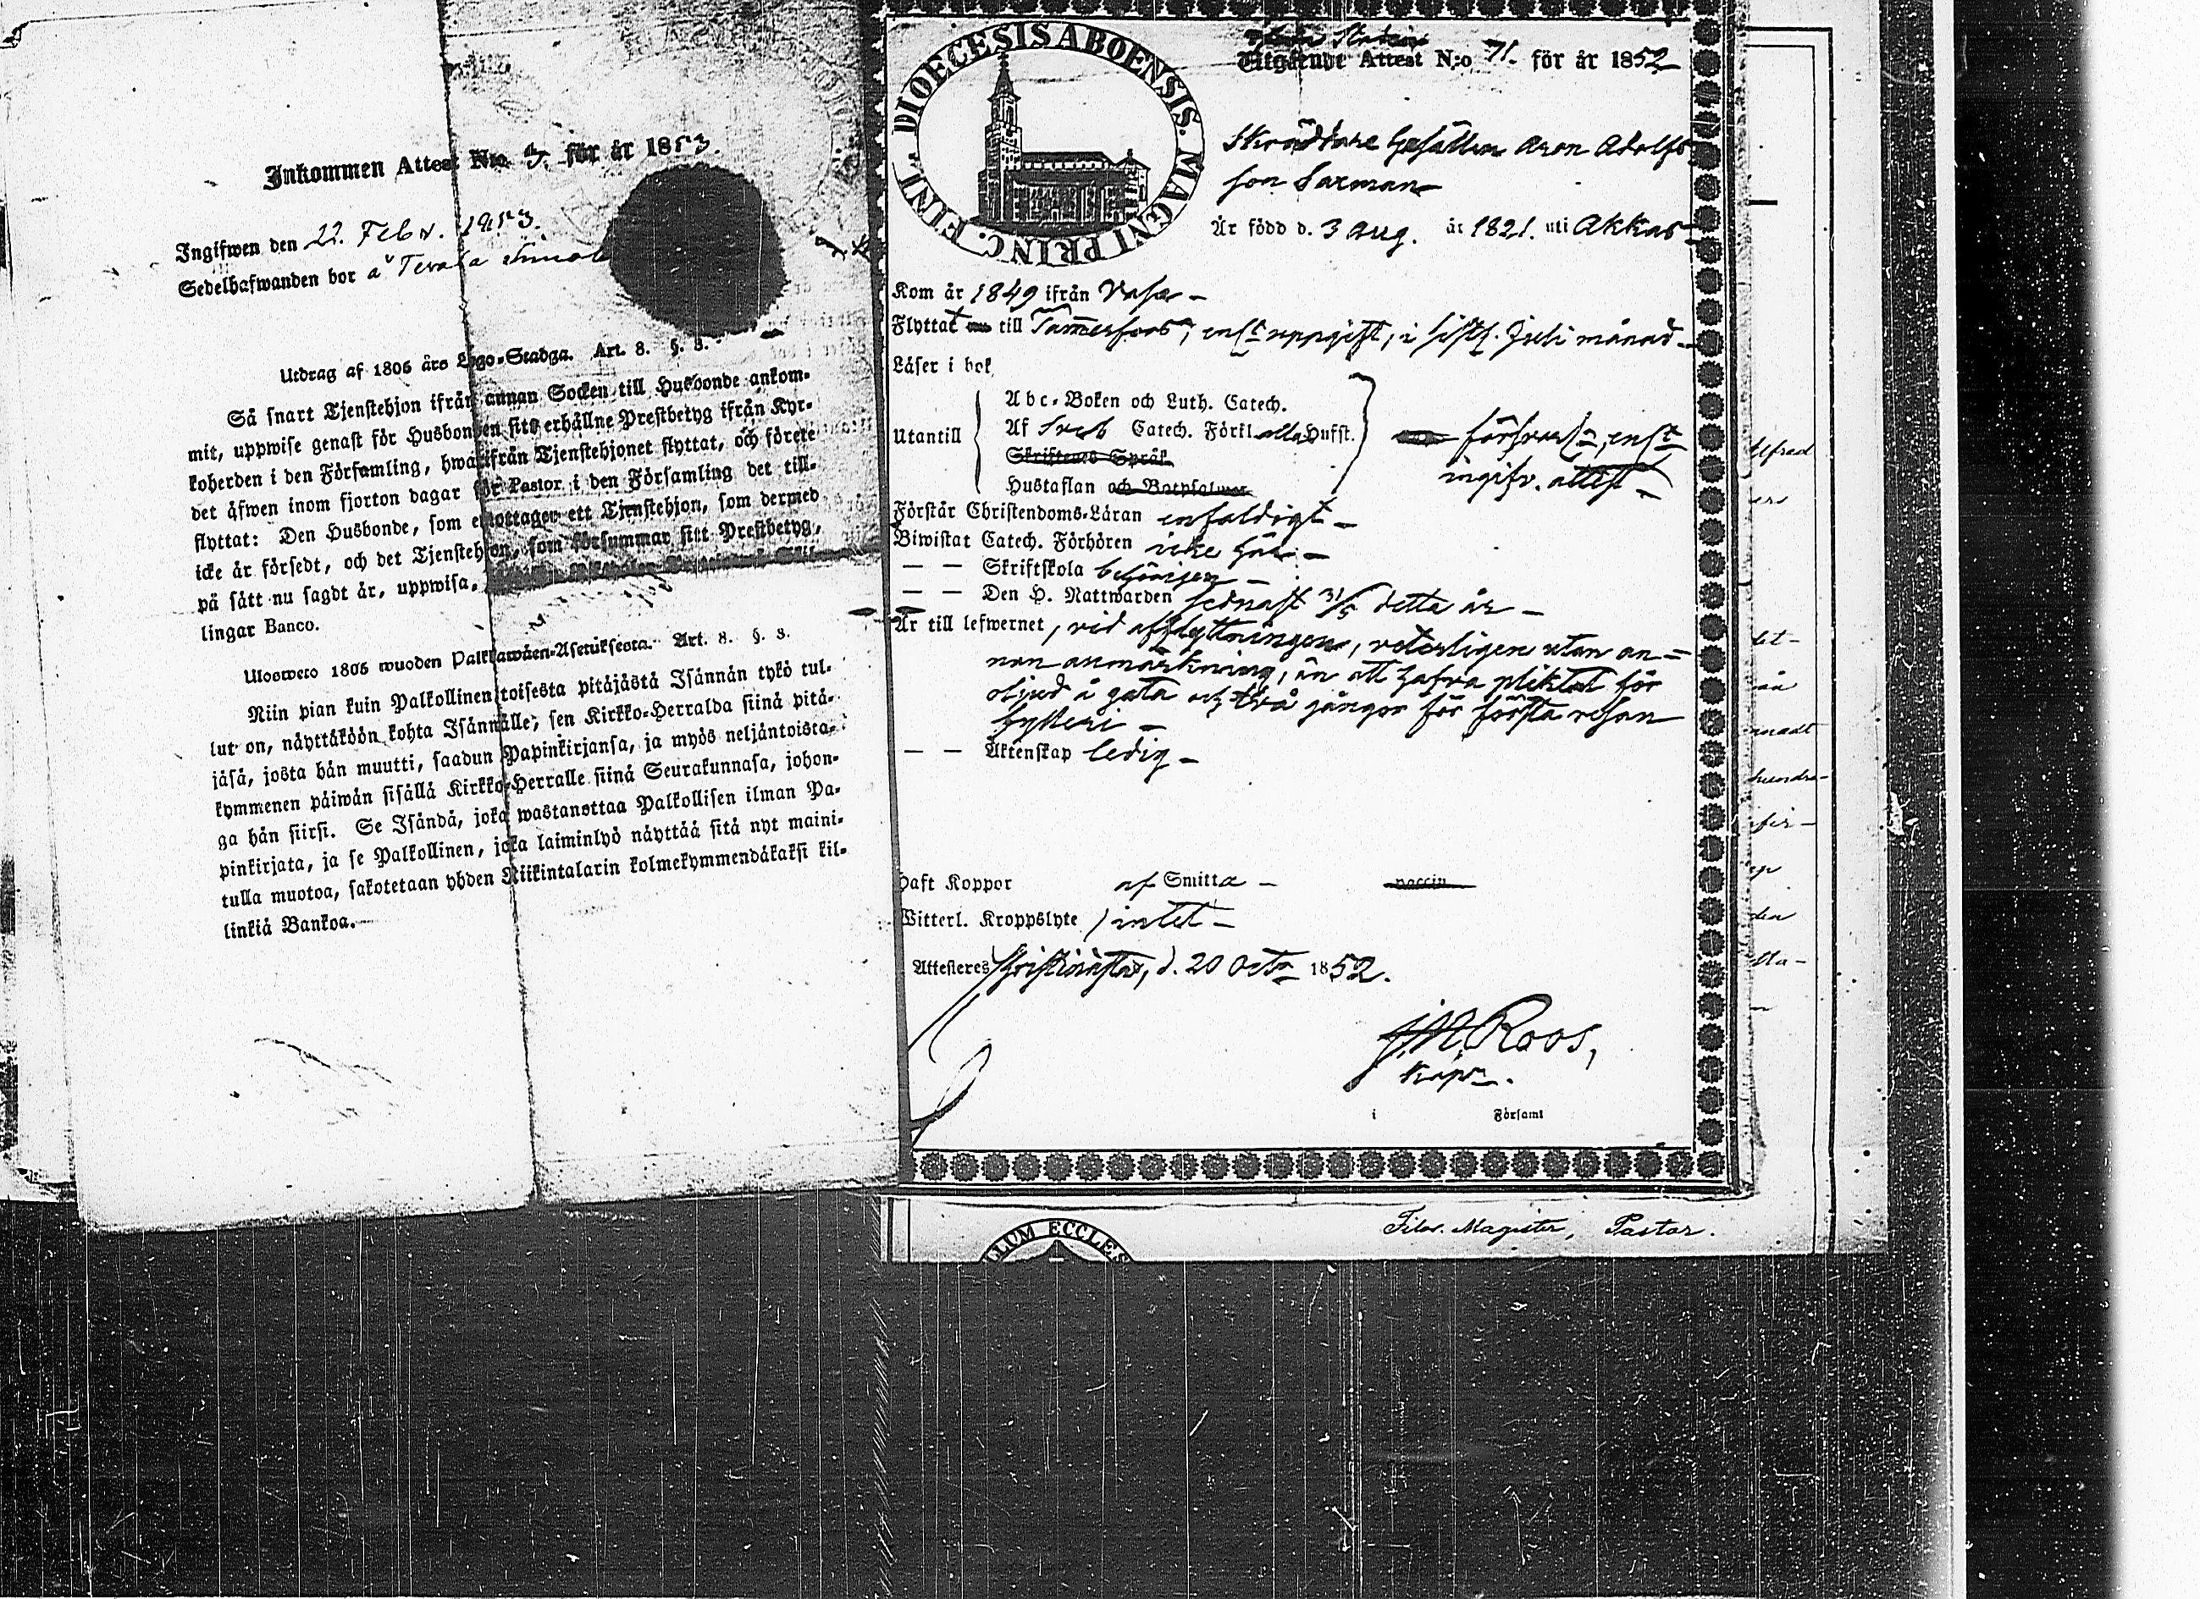 Inkommen Attest N:o 5. för år 1853.
Ingifwen den 22. Febr. 1853.
Sedelhafwanden bor å
Utdrag af 1805 års Lego-Stadga. Art. 8. §. 3.
Så snart Tjenstehjon ifrån annan Socken till Husbonde ankom-
mit, uppwise genast för Husbonden sitt erhållne Prestbetyg ifrån Kyr-
koherden i den Församling, hwarifrån Tjenstehjonet flyttat, och förete
det äfwen inom fjorton dagar för Pastor i den Församling det till-
flyttat: Den Husbonde, som emottager ett Tjenstehjon, som dermed
icke är försedt, och det Tjenstehjon, som försummar sitt Prestbetyg,
på sätt nu sagdt är, uppwisa,
lingar Banco.
Uloswero 1805 wuoden Palkkawäen-Asetuksesta. Art. 8. §. 3.
Niin pian kuin Palkollinen toisesta pitäjästä Isännän tykö tul-
lut on, näyttäköön kohta Isännälle, sen Kirkko-Herralda siinä pitä-
jäsä, josta hän muutti, saadun Papinkirjansa, ja myös neljäntoista-
kymmenen päiwän sisällä Kirkko-Herralle siinä Seurakunnasa, johon-
ga hän siirsi. Se Isändä, joka wastanottaa Palkollisen ilman Pa-
pinkirjata, ja se Palkollinen, joka laiminlyö näyttää sitä nyt maini-
tulla muotoa, sakotetaan yhden Riikintalarin kolmekymmendäkaksi kil-
linkiä Bankoa.
DIOECESIS ABOENSIS. MAGNI PRINC. FINL.
Utgående Attest N:o 71. för år 1852
Skräddare Gesällen Aron Adolfs
son Sarman
Är född d. 3 Aug. år 1821. uti Akkas
Kom år 1849 ifrån Vasa
Flyttat till Tammerfors, enl:t uppgift, i sistl. Juli månad
Läser i bok
Abc-Boken och Luth. Catech.
Utantill Af Sveb Catech. Förkl. alla Hufst. försvarl:a, enl:t
Skriftenes Språk ingifv. attest
Hustaflan och Botpsalmer
Förstår Christendoms-Läran enfaldigt
Biwistat Catech. Förhören icke här
— — Skriftskola behörigen
— — Den H. Nattwarden sednast 31/5 detta år
Är till lefwernet, vid afflyttningen, veterligen utan an-
nan anmärkning, än att hafva pliktat för
oljud å gata och två gånger för första resan
fylleri
— — Äktenskap ledig
Haft Koppor af Smitta vaccin
Witterl. Kroppslyte intet
Attesteres Christinæstad, d. 20 Oct:r 1852.
J.M. Roos,
Kapn.
i Församl
Alfred
hundra
den
Filos. Magister, Pastor.
LLUM ECCLES